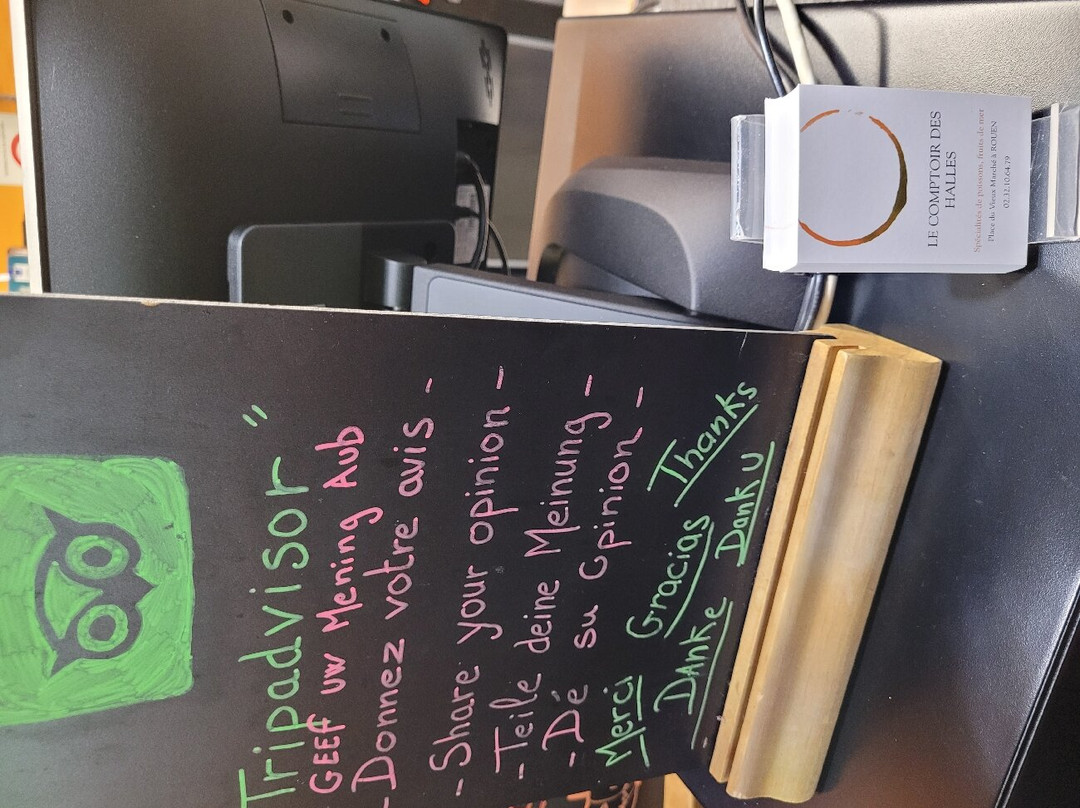 Tripadvisor "
GEEF UW Mening Aub
-Donnez votre avis -
-Share your opinion -
-Teile deine Meinung -
-Dé su Opinion -
Merci Gracias Thanks
Danke Danku
LE COMPTOIR DES
HALLES
Spécialités de poissons, fruits de mer
Place du Vieux Marché à ROUEN
02.32.10.64.79